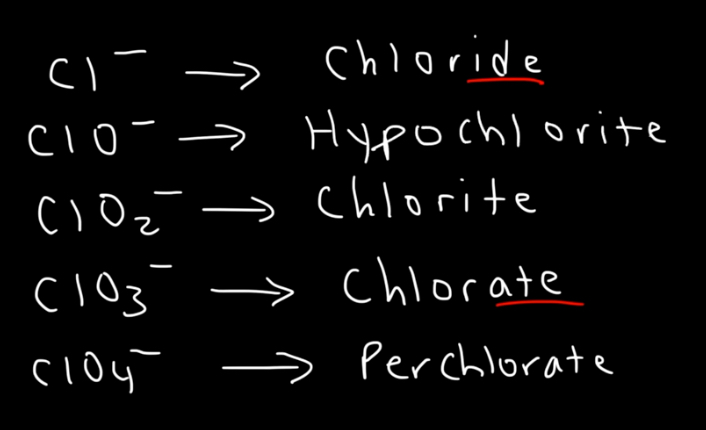 Cl⁻ → Chloride
ClO⁻ → Hypochlorite
ClO₂⁻ → Chlorite
ClO₃⁻ → Chlorate
ClO₄⁻ → Perchlorate